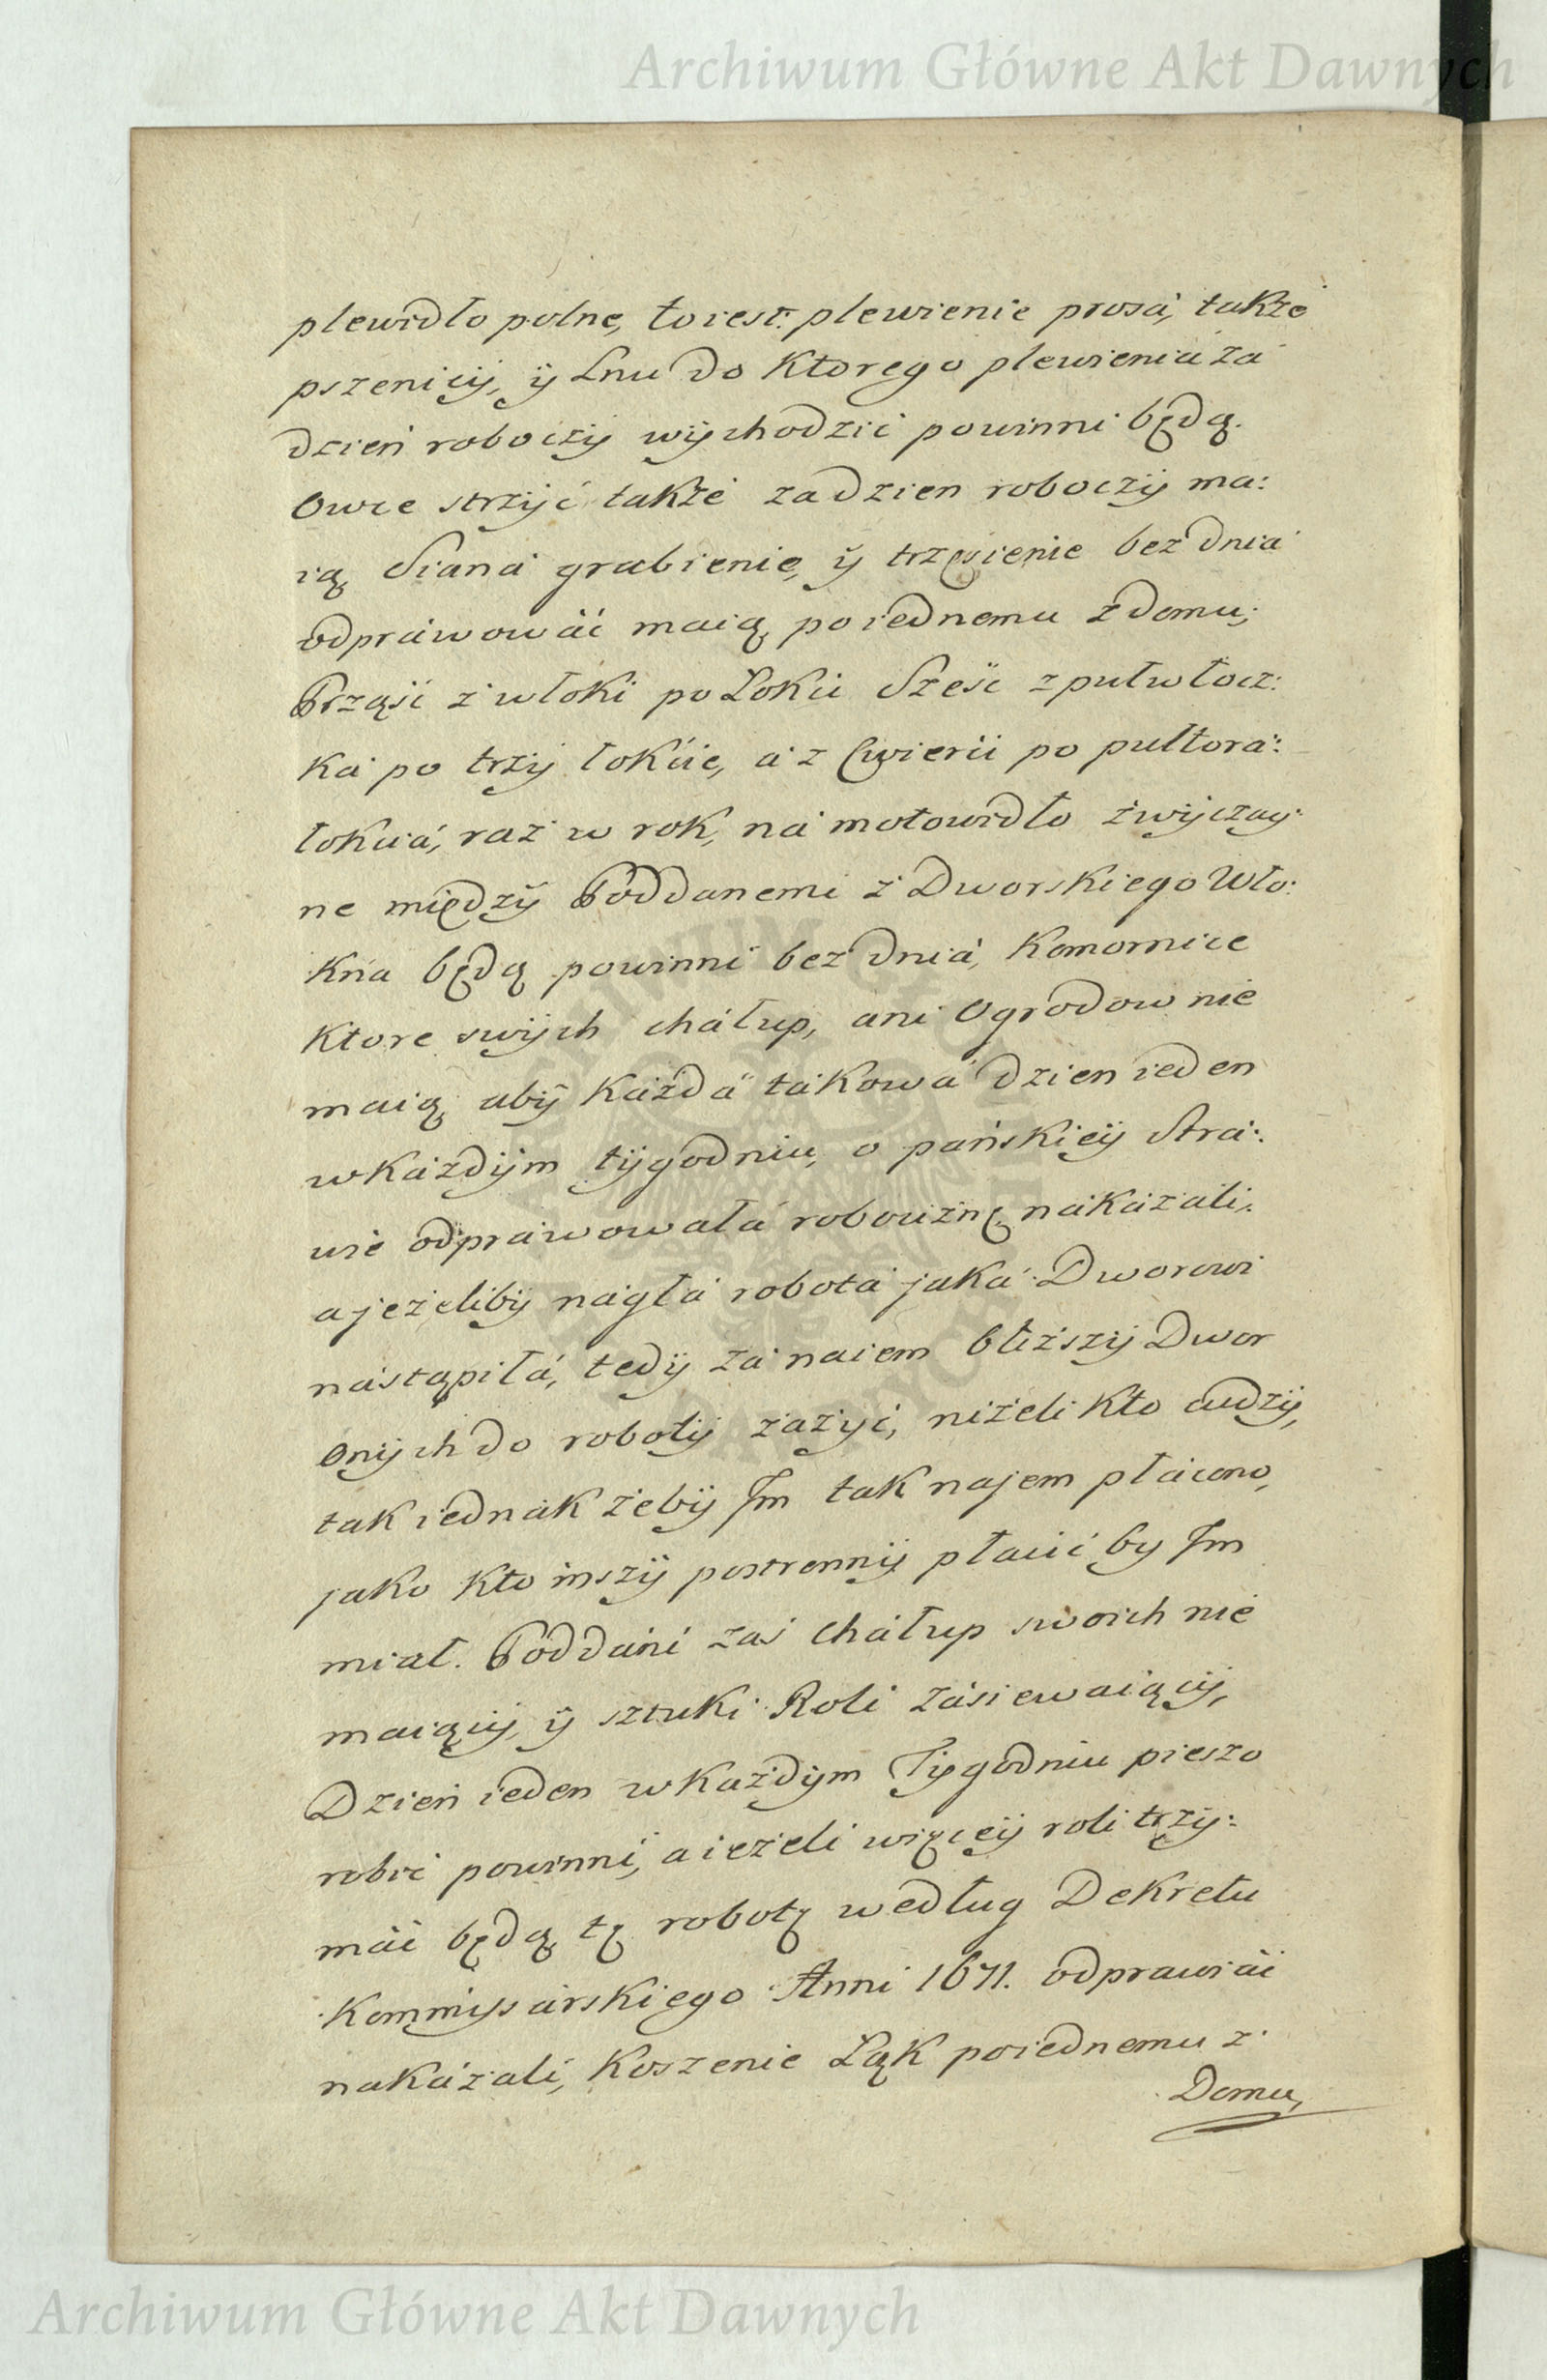 Archiwum Główne Akt Dawnych
plewidło polne, to iest: plewienie prosá, także
pszenicÿ, ÿ Lnu do Ktorego plewienia zá
dzień roboczÿ wÿchodzić powinni będą.
Owce strzÿć także za dzien roboczÿ ma:
ią, Siana grabienie, ÿ trzęsienie bez dniá
odpráwowáć maią, po iednemu z domu,
Prząść z włoki po Łokci Sześć z pułwłocz:
ká po trzÿ łokcie, á z Cwierci po pułtorá:
łokciá, raz w rok, ná motowidło zwÿczay:
ne międzÿ Poddanemi z Dworskiego Wło:
kna będą powinni bez dniá, Komornice
Ktore swÿch cháłup, ani Ogrodow nie
maią, abÿ Káżdá tákowá dzien ieden
w káżdÿm tÿgodniu, o pańskieÿ Strá:
wie odpráwowałá robociznę nákázáli,
a jeżelibÿ nágłá robotá jáká Dworowi
nástąpiłá, tedÿ zá naiem bliższÿ Dwor
Onÿch do robotÿ zażyć, niżeli Kto cudzÿ,
tak iednak żebÿ Im tak najem płácono,
jako Kto inszÿ postronnÿ płácić by Im
miał. Poddáni zaś Cháłup swoich nie
maiącÿ, ÿ sztuki Roli zásiewaiącÿ,
Dzień ieden w Każdÿm Tÿgodniu pieszo
robić powinni, a ieżeli więceÿ roli trzÿ:
máć będą, tę robotę według Dekretu
Kommissárskiego Anni 1671. odprawiáć
nakázáli, Koszenie Łąk po iednemu z
Domu,
Archiwum Główne Akt Dawnych